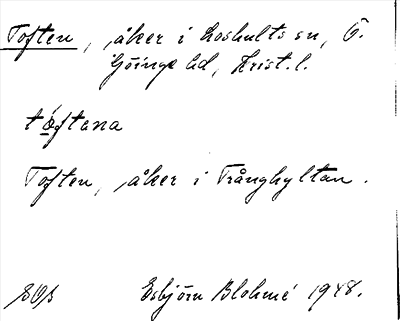 Toften, åker i Loshults sn, Ö.
Göinge hd, Krist. l.
tæftena
Toften, åker i Trånghyltan.
Esbjörn Blohmé 1948.